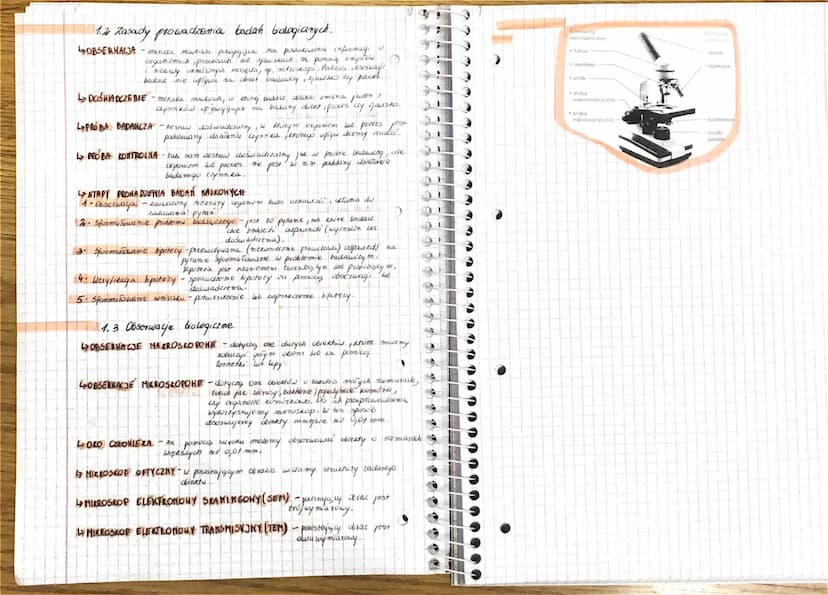 1.2 Zasady prowadzenia badań biologicznych.
↳ OBSERWACJA - metoda naukowa polegająca na poszukiwaniu informacji o
organizmach, procesach lub zjawiskach za pomocą zmysłów
badacz nie wpływa na obiekt badawczy, zjawisko czy proces.
↳ DOŚWIADCZENIE - metoda naukowa, w której badacz celowo zmienia jeden z
czynników wpływających na badany obiekt, proces czy zjawisko.
↳ PRÓBA BADAWCZA - zestaw doświadczalny, w którym organizm lub proces jest
poddawany działaniu czynnika, którego wpływ chcemy zbadać.
↳ PRÓBA KONTROLNA - taki sam zestaw doświadczalny jak w próbie badawczej, ale
organizm lub proces nie jest w nim poddany działaniu
badanego czynnika.
↳ ETAPY PROWADZENIA BADAŃ NAUKOWYCH
1. Obserwacja - zadawania pytań.
2. Sformułowanie problemu badawczego - jest to pytanie, na które badacz
chce znaleźć odpowiedź
doświadczenia).
3. Sformułowanie hipotezy - przewidywana odpowiedź na
pytanie sformułowane w problemie badawczym.
Hipoteza jest zdaniem twierdzącym lub przeczącym.
4. Weryfikacja hipotezy - sprawdzenie hipotezy za pomocą obserwacji lub
doświadczenia.
5. Sformułowanie wniosku - potwierdzenie lub zaprzeczenie hipotezy.
1.3 Obserwacje biologiczne
↳ OBSERWACJE MAKROSKOPOWE - dotyczą one dużych obiektów, które możemy
zobaczyć gołym okiem lub za pomocą
lornetki lub lupy.
↳ OBSERWACJE MIKROSKOPOWE - dotyczą one obiektów o bardzo małych rozmiarach,
takich jak wirusy, bakterie, pojedyncze komórki,
czy organelle komórkowe. Do ich przeprowadzenia
wykorzystujemy mikroskop. W ten sposób
obserwujemy obiekty mniejsze niż 0,01 mm.
↳ OKO CZŁOWIEKA - za pomocą wzroku możemy obserwować obiekty o rozmiarach
większych niż 0,01 mm.
↳ MIKROSKOP OPTYCZNY - w powstającym obrazie widzimy struktury badanego
obiektu.
↳ MIKROSKOP ELEKTRONOWY SKANINGOWY (SEM) - powstający obraz jest
trójwymiarowy.
↳ MIKROSKOP ELEKTRONOWY TRANSMISYJNY (TEM) - powstający obraz jest
dwuwymiarowy.